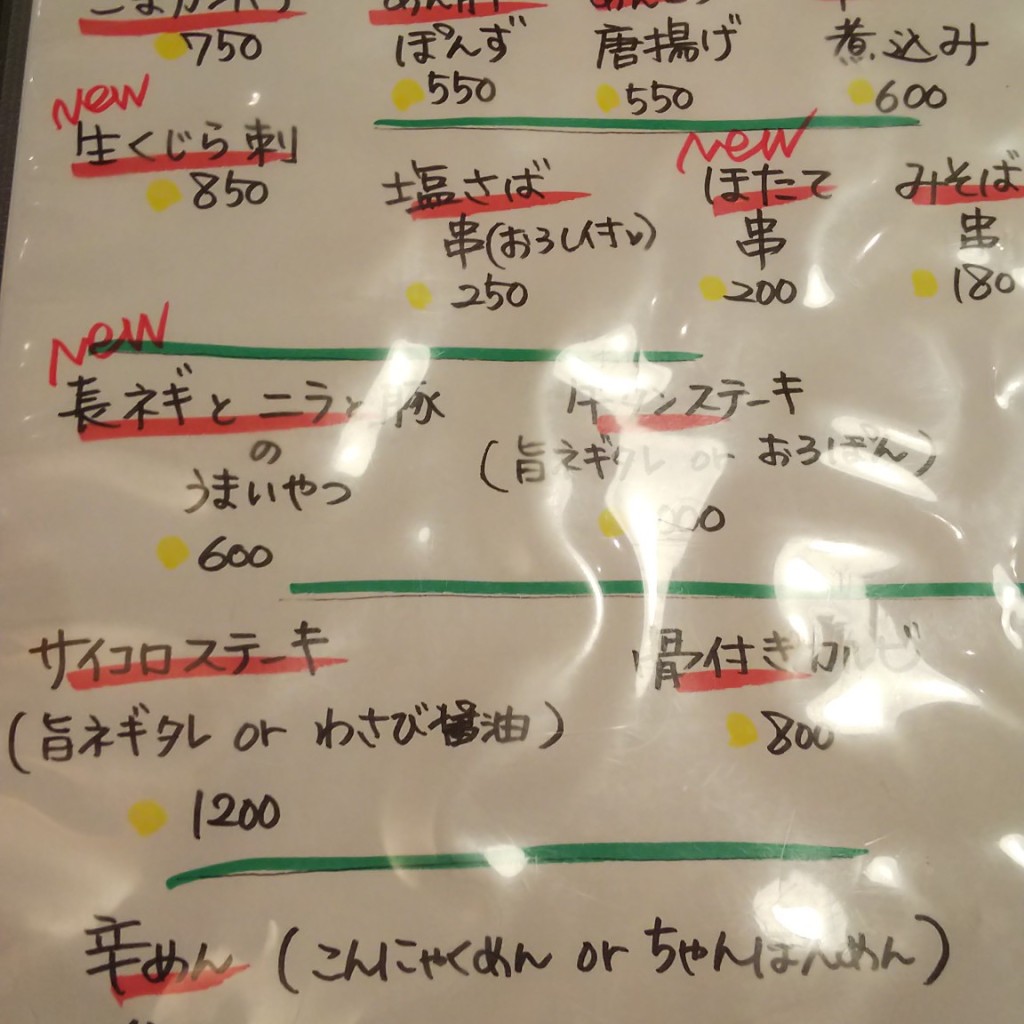 750
ぽんず
550
唐揚げ
550
煮込み
600
New
生くじら刺
850
塩さば
串(おろしけずり)
250
New
ほたて
串
200
みそば
串
180
New
長ネギとニラと豚
の
うまいやつ
600
牛タンステーキ
(旨ネギタレ or おろぽん)
サイコロステーキ
(旨ネギタレ or わさび醤油)
1200
骨付きカルビ
800
辛めん (こんにゃくめん or ちゃんぽんめん)